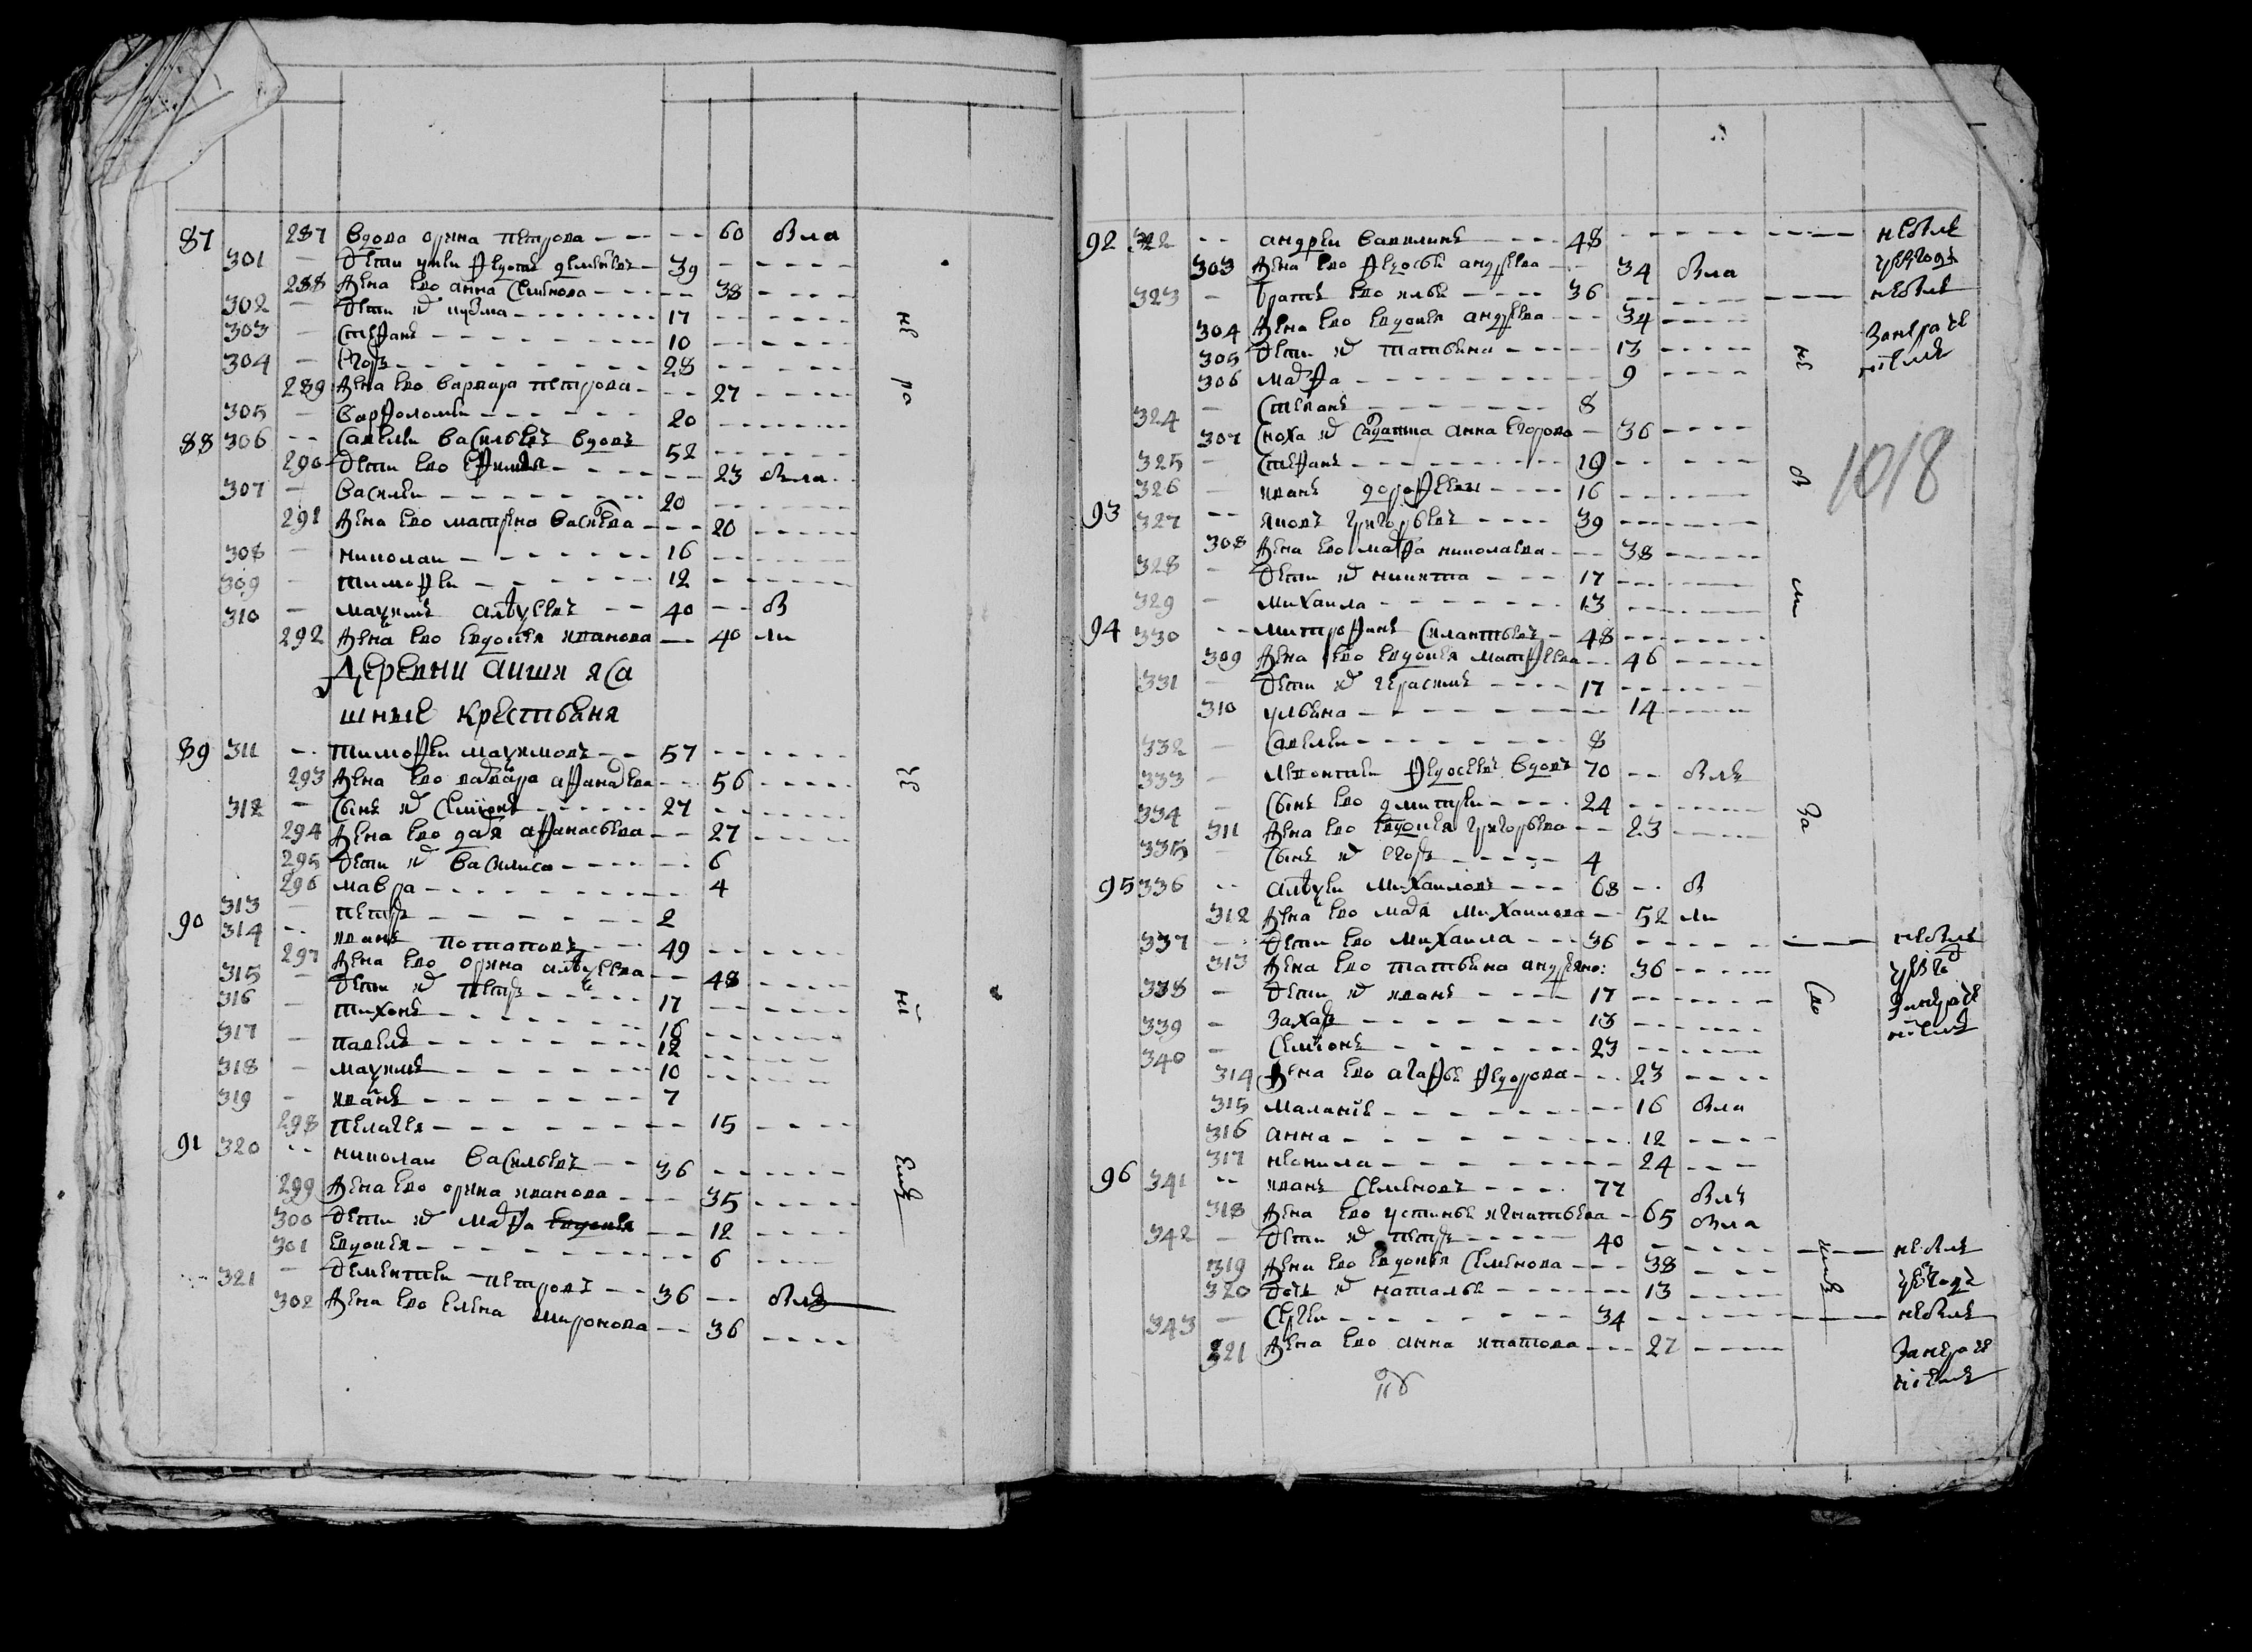 87 287 вдова орина петрова 60 была
301 дети ушли федотъ дементьевъ 39
288 жена ево анна семенова 38
302 дети их кузма 17
303 стефанъ 10
304 егоръ 28
289 жена ево варвара петрова 27
305 варфоломеи 20
88 306 савелеи васильевъ вдовъ 52
290 дети ево 23 была
307 василеи 20
291 жена ево матрена 20
308 николаи 16
309 тимофеи 12
310 максимъ алексеевъ 40 б
292 жена ево евдокея иванова 40 ли
Деревни аиши яса
шные крестьяня
89 311 тимофеи максимовъ 57
293 жена ево варвара афанасева 56
312 сынъ их семионъ 27
294 жена ево дарья афанасьева 27
295 дети их василиса 6
296 мавра 4
313 петръ 2
90 314 иванъ потаповъ 49
297 жена ево орина алексеева 48
315 дети их петръ 17
316 тихонъ 16
317 павелъ 12
318 максимъ 10
319 иванъ 7
298 пелагея 15
91 320 николаи васильевъ 36
299 жена ево орина иванова 35
300 дети их марфа евдокея 12
301 евдокея 6
321 дементеи петровъ 36 былъ
302 жена ево елена миронова 36
не
ра
зе
ни
емъ
92 322 андреи вавилинъ 48 небылъ
303 жена ево федосья андреева 34 была
323 братъ ево илья 36 небылъ
304 жена ево евдокея андреева 34
305 дети их татьяна 13
306 марфа 9
324 степанъ 8
307 сноха их салдатка анна егорова 36
325 стефанъ 19
326 иванъ дорофеевъ 16
93 327 яковъ григорьевъ 39
308 жена ево марфа николаева 38
328 дети их никита 17
329 михаила 13
94 330 митрофанъ силантьевъ 48
309 жена ево евдокея матфеева 46
331 дети их герасимъ 17
310 ульяна 14
332 савелеи 8
333 леонтеи федосеевъ вдовъ 70 былъ
334 сынъ ево дмитреи 24
311 жена ево евдокея григорьева 23
335 сынъ их егоръ 4
95 336 алексеи михаиловъ 68 б
312 жена ево марья михаилова 52 ли
337 дети ево михаила 36 небылъ
313 жена ево татьяна андреяно: 36
338 дети их иванъ 17
339 захаръ 13
340 семионъ 23
314 жена ево агафья федорова 23
315 маланья 16 была
316 анна 12
317 неонила 24
96 341 иванъ семеновъ 77 былъ
318 жена ево устинья игнатьева 65 была
342 дети их петръ 40 небылъ
319 жена ево евдокея семенова 38
320 дочь их наталья 13
343 сергеи 34 небылъ
321 жена ево анна ипатова 27
не
б
ли
за
1018